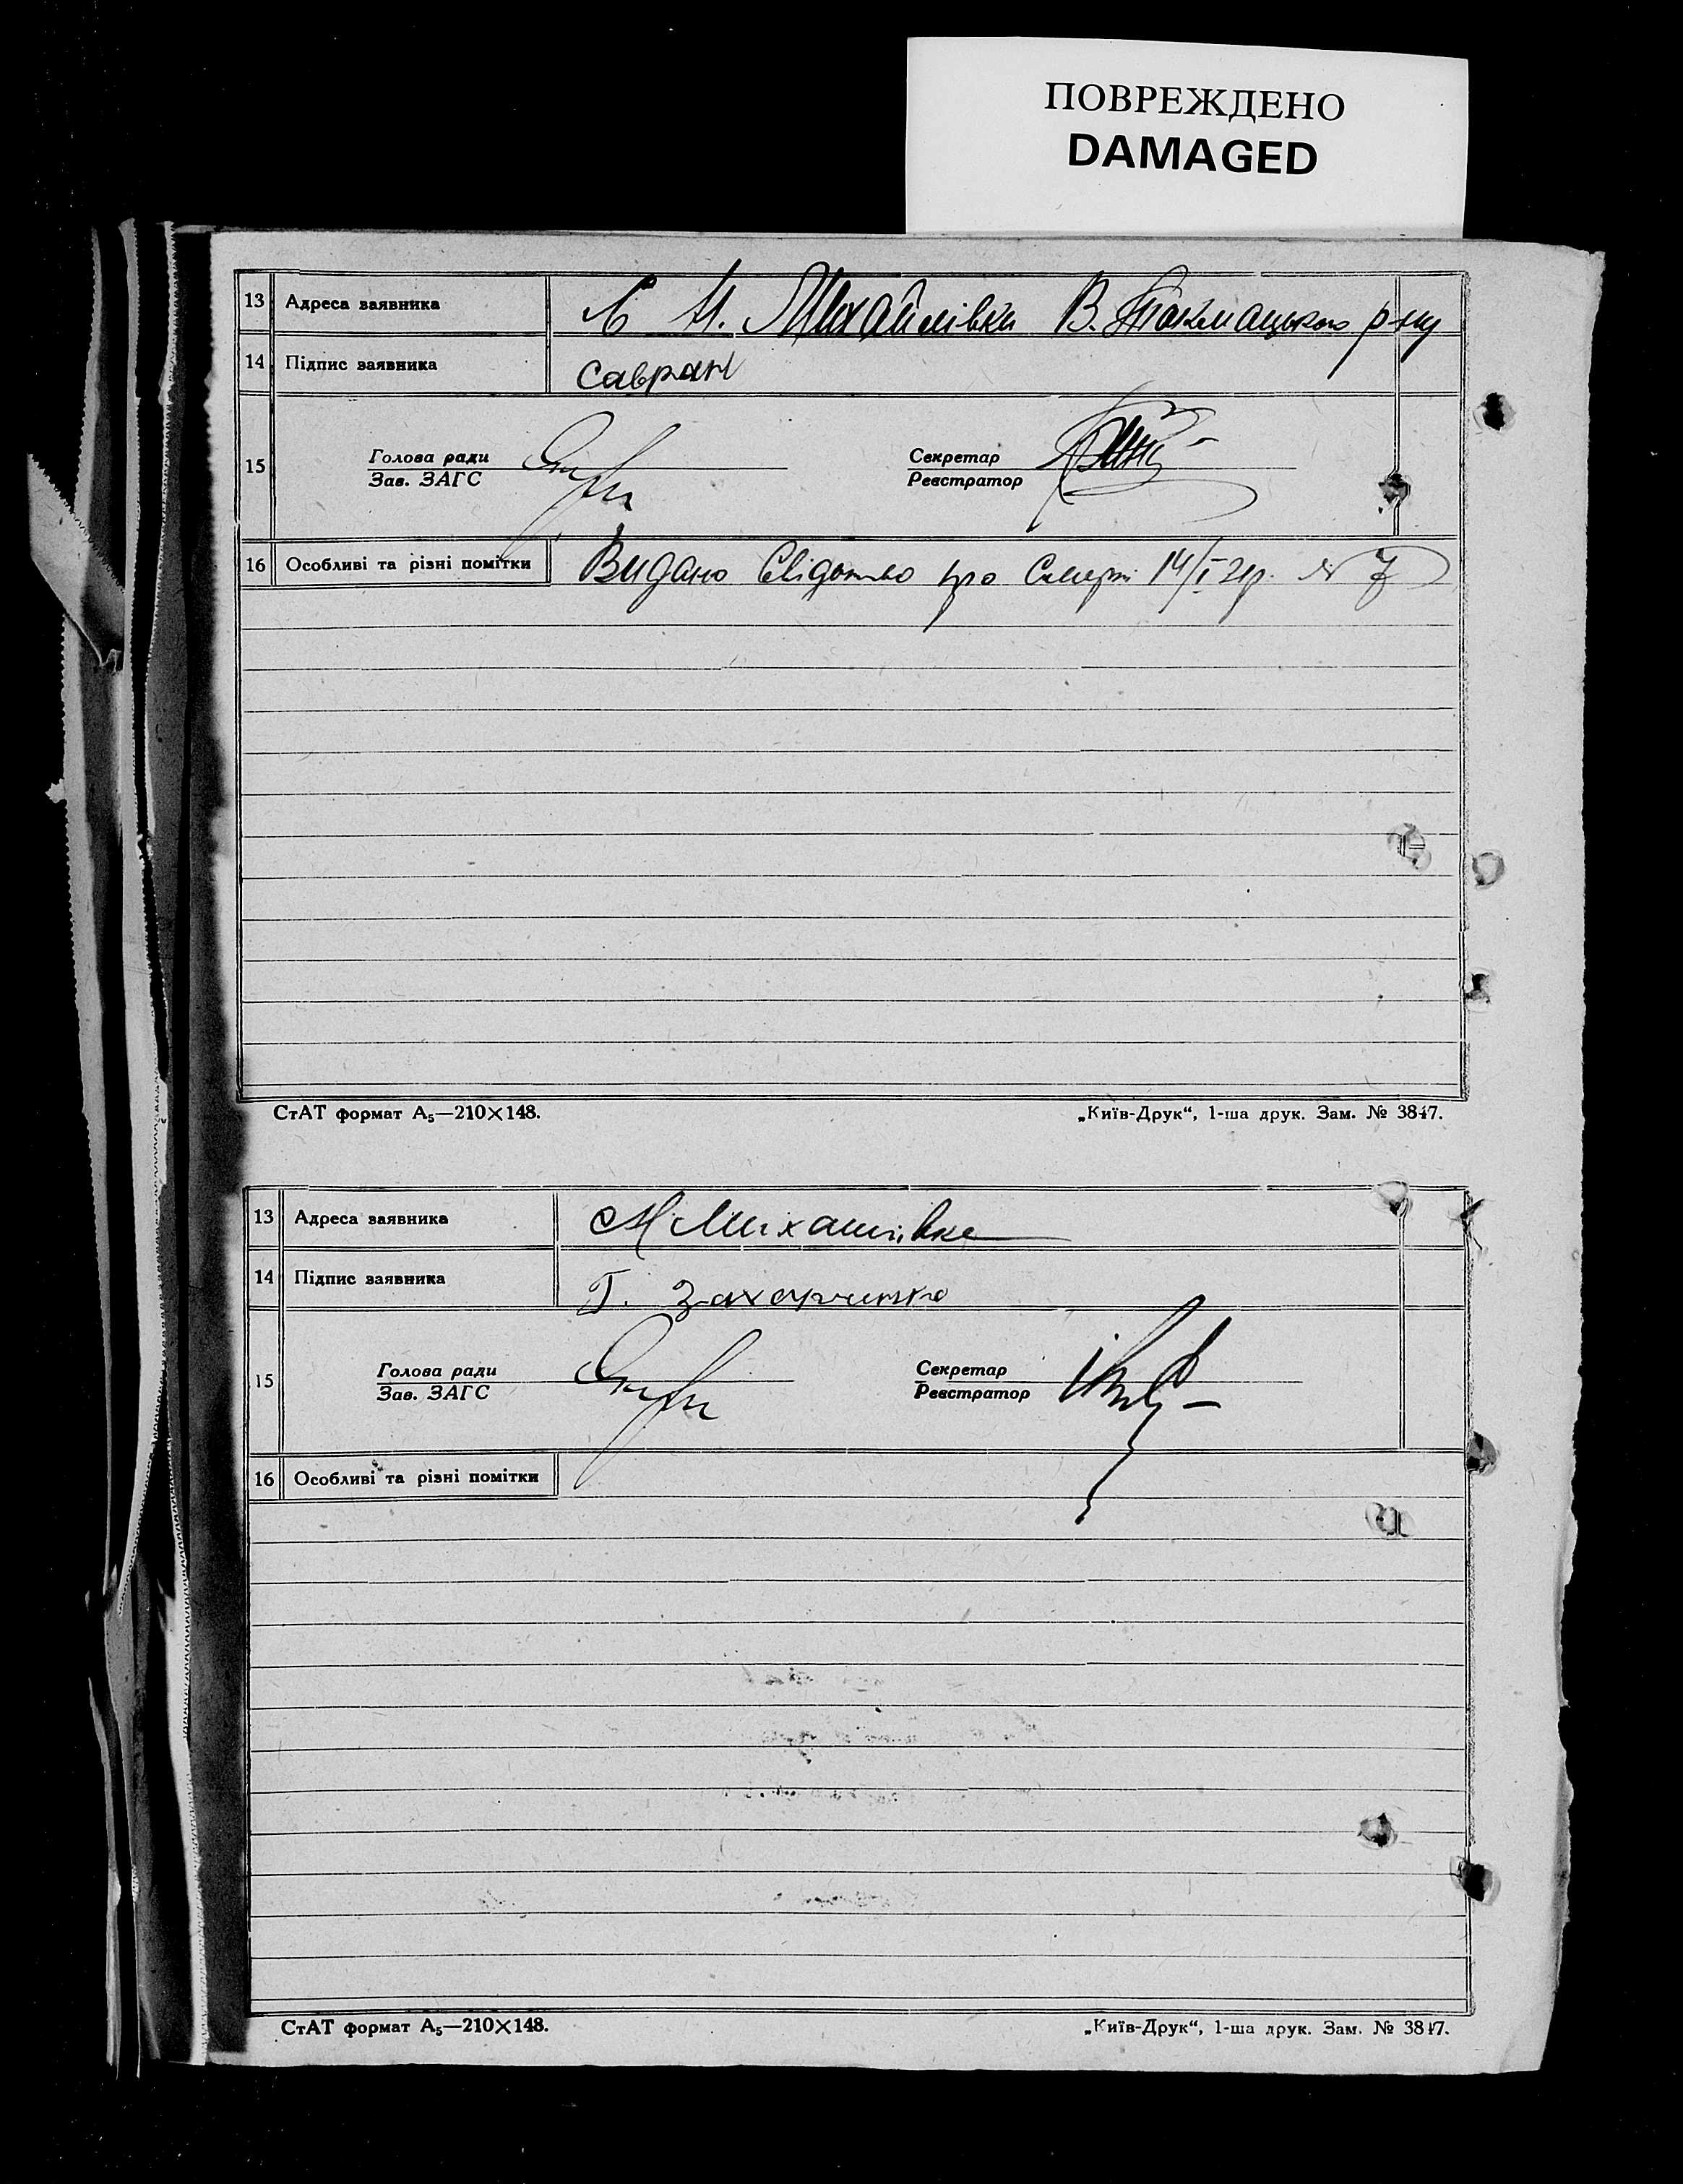 ПОВРЕЖДЕНО
DAMAGED
13 Адреса заявника С М. Михайлівка В. Токмацького р-ну
14 Підпис заявника Савран
15 Голова ради Секретар
Зав. ЗАГС Реєстратор
16 Особливі та різні помітки Видано Свідотво про Смерть 14/І № 7
СтАТ формат А₅—210×148. „Київ-Друк“, 1-ша друк. Зам. № 3847.
13 Адреса заявника М Михайлівка
14 Підпис заявника Г. Захарченко
15 Голова ради Секретар
Зав. ЗАГС Реєстратор
16 Особливі та різні помітки
СтАТ формат А₅—210×148. „Київ-Друк“, 1-ша друк. Зам. № 3847.